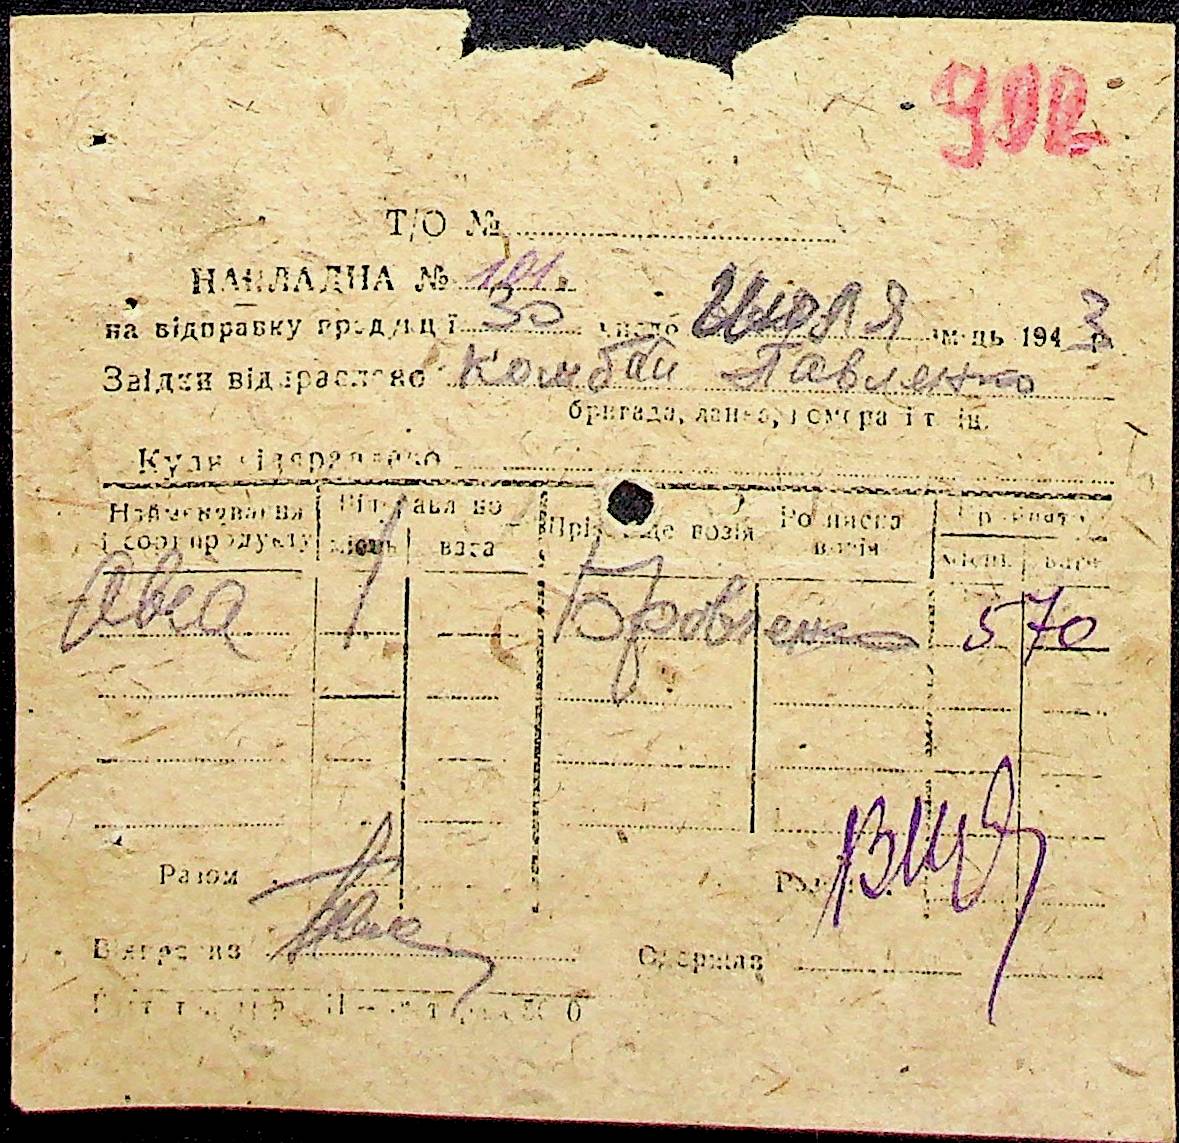 902
Т/О №
НАКЛАДНА № 101
на відправку продукції 30 число Июля м-ць 1943 р.
Звідки відправлено Комбай Павленко
бригада, ланка, комора і т. ін.
Куди відправлено
Найменування і сорт продукту Відправлено місць вага Прізвище возія Розписка возія Прийнято місць вага
Овса 1 Бровленко 570
Разом Разом
Відправив Одержав